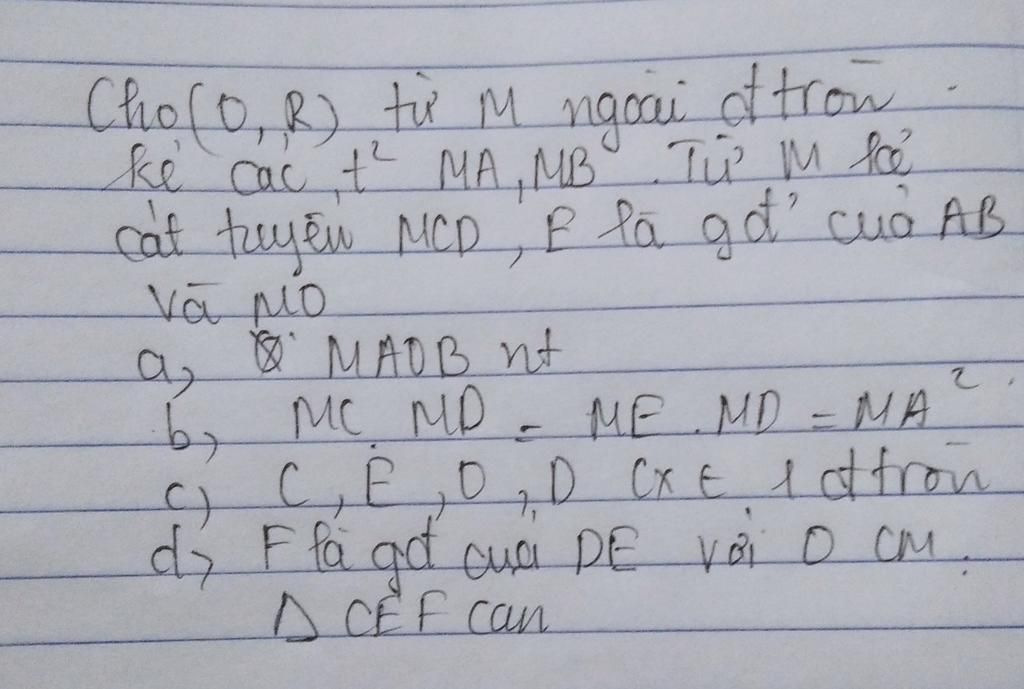 Cho(O,R) từ M ngoài đtròn.
kẻ các t² MA, MB. Từ M kẻ
cát tuyến MCD, E là gđ' của AB
và MO
a, MAOB nt
b, MC.MD = ME.MD = MA².
c, C, E, O, D cx ∈ 1 đtròn
d, F là gđ của DE với O CM.
Δ CEF cân